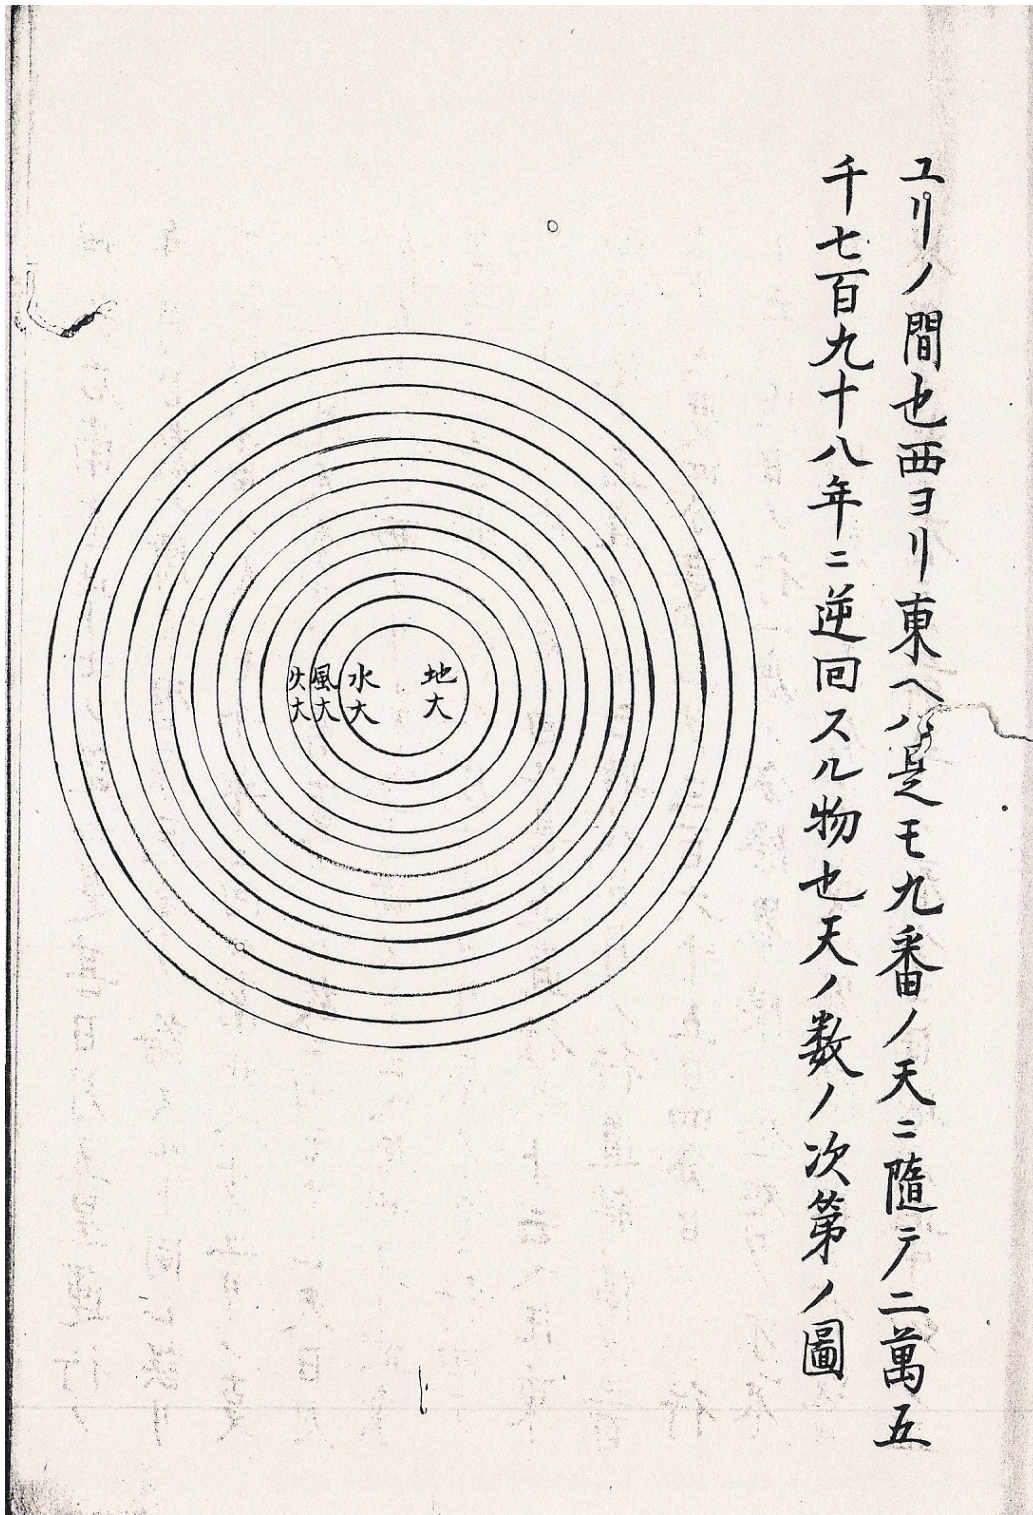 ユリノ間也西ヨリ東ヘハ是モ九番ノ天ニ隨テ二萬五
千七百九十八年ニ逆回スル物也天ノ数ノ次第ノ圖
地大
水大
風大
火大